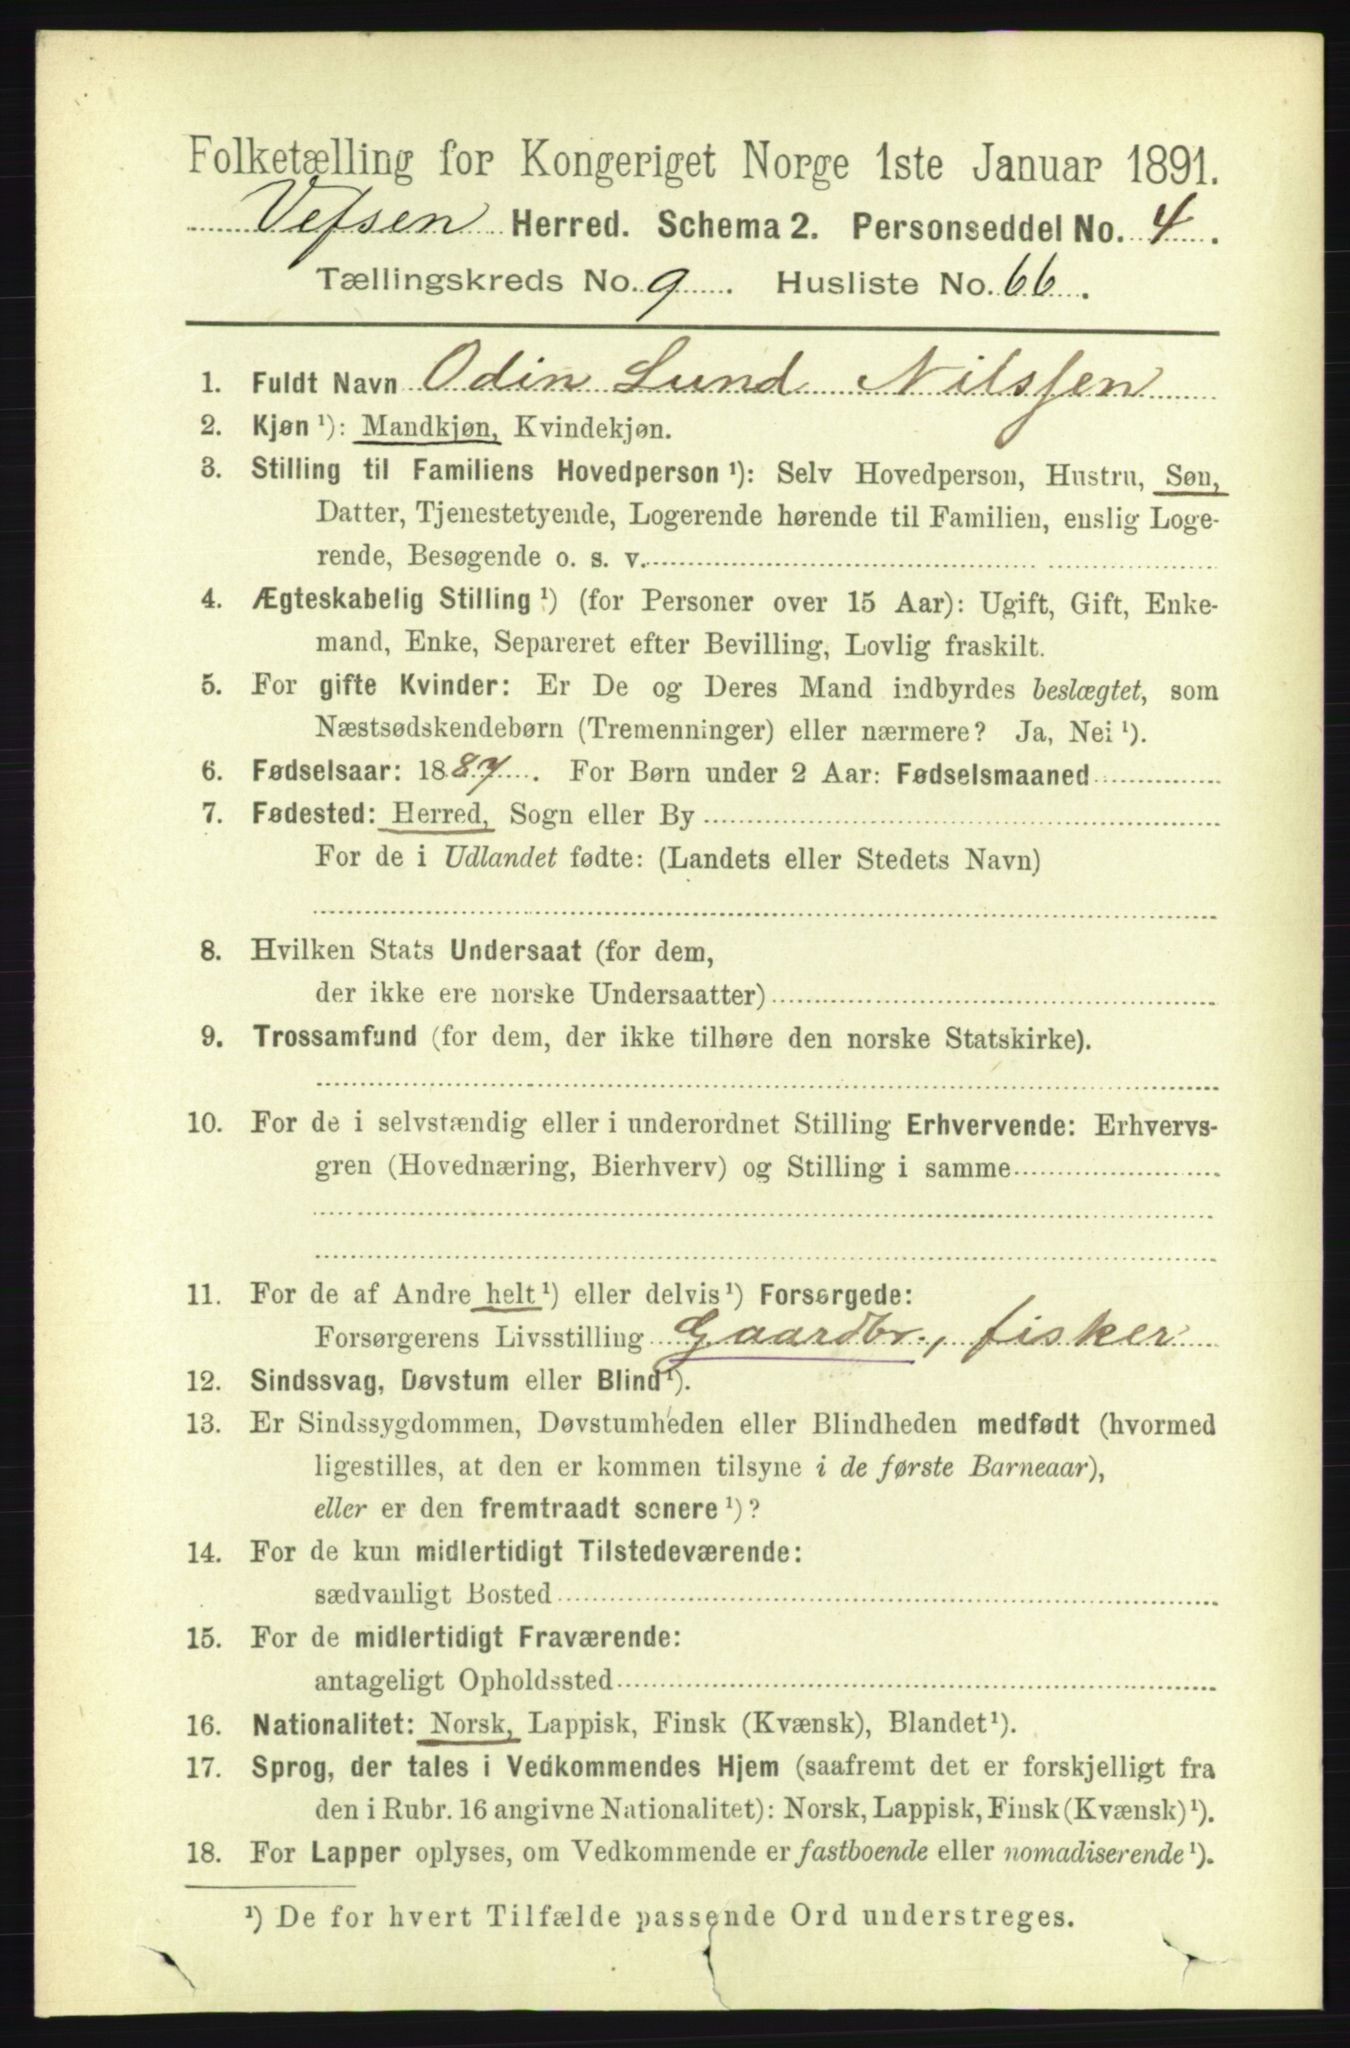 Folketælling for Kongeriget Norge 1ste Januar 1891.
Vefsen Herred. Schema 2. Personseddel No. 4.
Tællingskreds No. 9. Husliste No. 66.
1. Fuldt Navn Odin Lund Nilssen
2. Kjøn ¹): Mandkjøn, Kvindekjøn.
3. Stilling til Familiens Hovedperson ¹): Selv Hovedperson, Hustru, Søn,
Datter, Tjenestetyende, Logerende hørende til Familien, enslig Loge-
rende, Besøgende o. s. v.
4. Ægteskabelig Stilling ¹) (for Personer over 15 Aar): Ugift, Gift, Enke-
mand, Enke, Separeret efter Bevilling, Lovlig fraskilt.
5. For gifte Kvinder: Er De og Deres Mand indbyrdes beslægtet, som
Næstsødskendebørn (Tremenninger) eller nærmere? Ja, Nei ¹).
6. Fødselsaar: 1887. For Børn under 2 Aar: Fødselsmaaned
7. Fødested: Herred, Sogn eller By
For de i Udlandet fødte: (Landets eller Stedets Navn)
8. Hvilken Stats Undersaat (for dem,
der ikke ere norske Undersaatter)
9. Trossamfund (for dem, der ikke tilhøre den norske Statskirke).
10. For de i selvstændig eller i underordnet Stilling Erhvervende: Erhvervs-
gren (Hovednæring, Bierhverv) og Stilling i samme
11. For de af Andre helt ¹) eller delvis ¹) Forsørgede:
Forsørgerens Livsstilling Gaardbr., fisker
12. Sindssvag, Døvstum eller Blind ¹).
13. Er Sindssygdommen, Døvstumheden eller Blindheden medfødt (hvormed
ligestilles, at den er kommen tilsyne i de første Barneaar),
eller er den fremtraadt senere ¹)?
14. For de kun midlertidigt Tilstedeværende:
sædvanligt Bosted
15. For de midlertidigt Fraværende:
antageligt Opholdssted
16. Nationalitet: Norsk, Lappisk, Finsk (Kvænsk), Blandet ¹).
17. Sprog, der tales i Vedkommendes Hjem (saafremt det er forskjelligt fra
den i Rubr. 16 angivne Nationalitet): Norsk, Lappisk, Finsk (Kvænsk) ¹).
18. For Lapper oplyses, om Vedkommende er fastboende eller nomadiserende ¹).
¹) De for hvert Tilfælde passende Ord understreges.